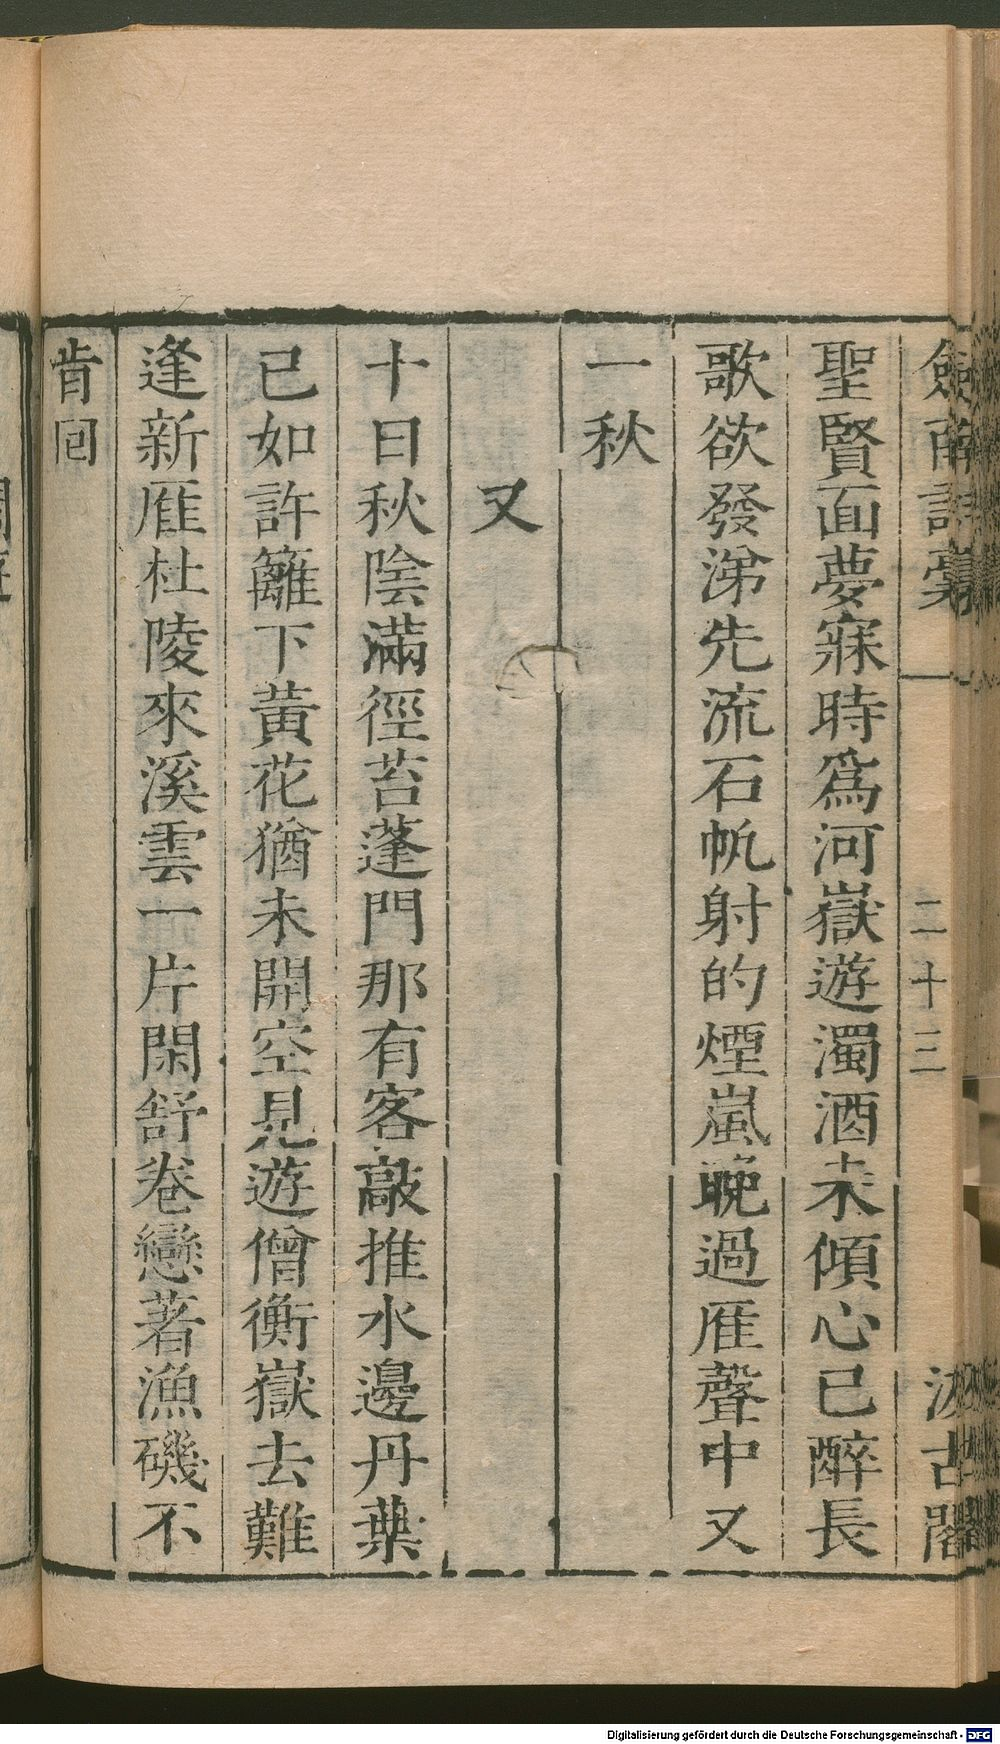 劍南詩稾
二十三
汲古閣
聖賢面夢寐時爲河嶽遊濁酒未傾心已醉長
歌欲發涕先流石帆射的煙嵐晩過雁聲中又
一秋
又
十日秋陰滿徑苔蓬門那有客敲推水邊丹葉
已如許籬下黃花猶未開空見遊僧衡嶽去難
逢新雁杜陵來溪雲一片閑舒卷戀著漁磯不
肯囘
Digitalisierung gefördert durch die Deutsche Forschungsgemeinschaft - DFG